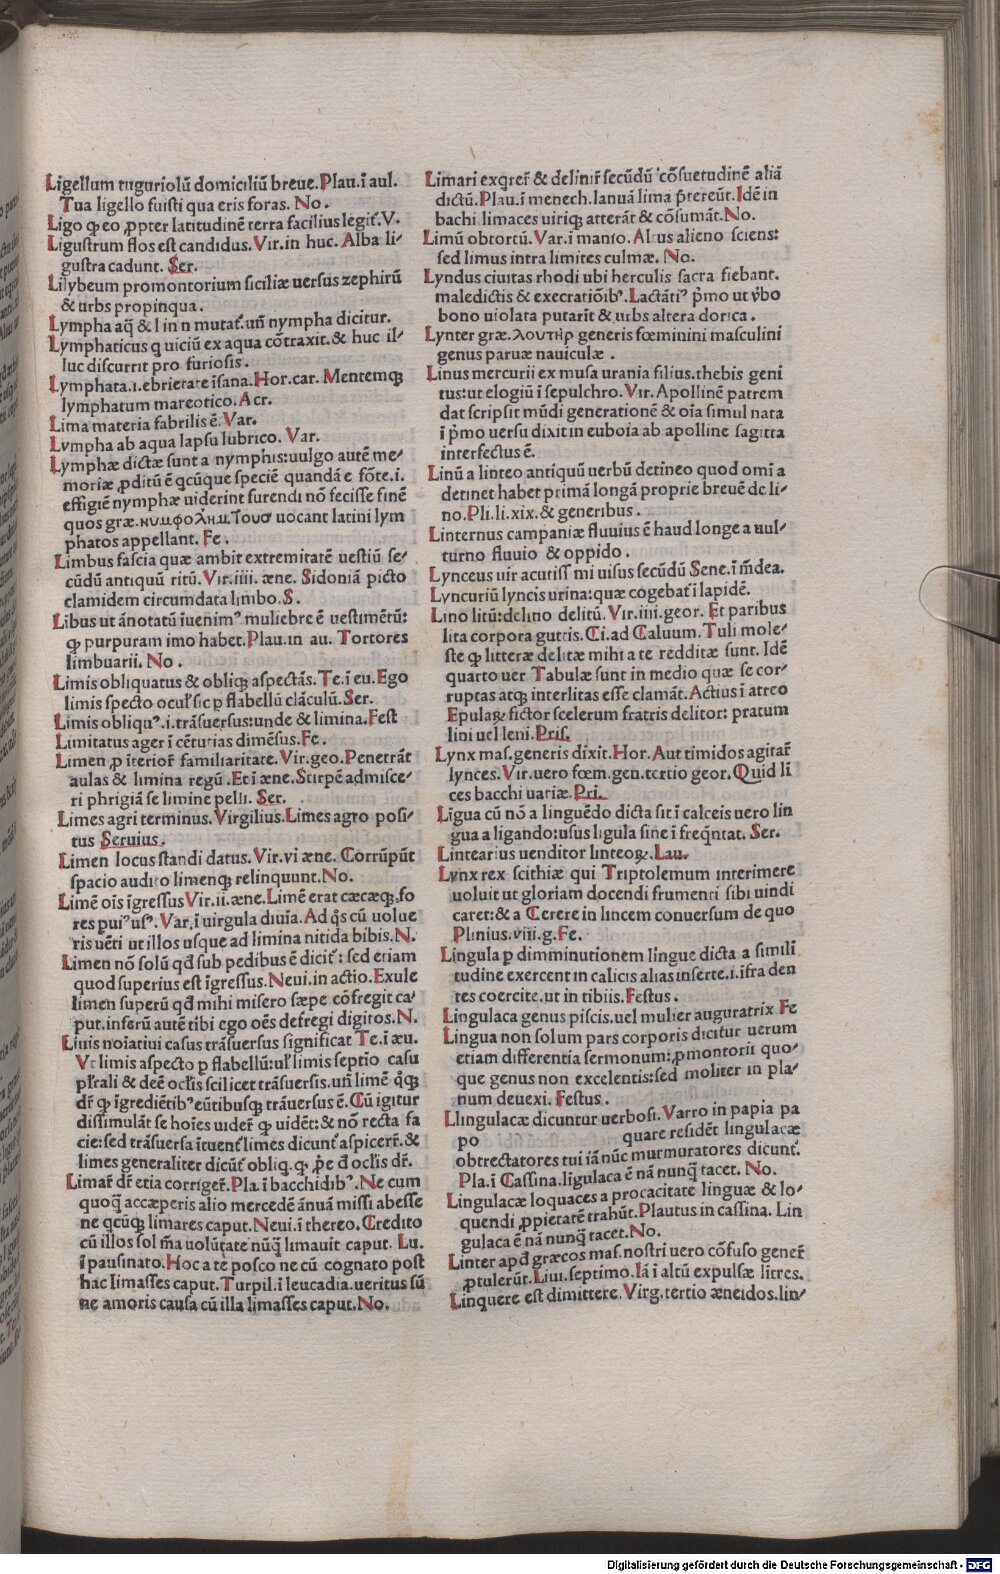 Ligellum tuguriolū domiciliū breue.Plau.ī aul.
Tua ligello fuisti qua eris foras. No.
Ligo ꝙ eo ꝓpter latitudinē terra facilius legit̄.V.
Ligustrum flos est candidus. Vir.in huc. Alba li⸗
gustra cadunt. Ser.
Lilybeum promontorium siciliæ uersus zephirū
& urbs propinqua.
Lympha aq̄ & l in n mutat̄.un̄ nympha dicitur.
Lymphaticus q uiciū ex aqua cōtraxit.& huc il⸗
luc discurrit pro furiosis.
Lymphata.i.ebrietate īsana.Hor.car. Mentemqꝫ
lymphatum mareotico.Acr.
Lima materia fabrilis ē. Var.
Lympha ab aqua lapsu lubrico. Var.
Lymphæ dictæ sunt a nymphis:uulgo autē me⸗
moriæ ꝓditū ē qcūque speciē quandā e fōte.i.
effigiē nymphæ uiderint furendi nō fecisse finē
quos græ. uocant latini lym
phatos appellant. Fe.
Limbus fascia quæ ambit extremitatē uestiū se⸗
cūdū antiquū ritū. Vir.iiii. æne. Sidoniā picto
clamidem circumdata limbo. S.
Libus ut ānotatū iuenimꝰ muliebre ē uestimētū:
ꝙ purpuram imo habet.Plau.in au. Tortores
limbuarii. No.
Limis obliquatus & obliqꝫ aspectās. Te.i eu.Ego
limis specto ocul̄ sic p flabellū clāculū.Ser.
Limis obliquꝰ.i.trāsuersus:unde & limina.Fest
Limitatus ager ī cēturias dimēsus.Fe.
Limen p iterior̄ familiaritate. Vir.geo. Penetrāt
aulas & limina regū. Et ī æne. Stirpē admisce⸗
ri phrigiā se limine pelli. Ser.
Limes agri terminus. Virgilius.Limes agro posi⸗
tus Seruius.
Limen locus standi datus. Vir.vi æne. Corrūpūt
spacio audito limenqꝫ relinquunt.No.
Limē oīs īgressus Vir.ii.æne.Limē erat cæcæqꝫ.fo
res puiꝰ usꝰ. Var.ī uirgula diuia. Ad q̊s cū uolue
ris uēti ut illos usque ad limina nitida bibis.N.
Limen nō solū qđ sub pedibus ē dicit̄: sed etiam
quod superius est īgressus.Neui.in actio.Exule
limen superū qđ mihi misero sæpe cōfregit ca⸗
put.inferū autē tibi ego oēs defregi digitos. N.
Liuis noiatiui casus trāsuersus significat Te.i æu.
Vt limis aspecto p flabellū:ul̄ limis septio casu
plrali & deē oclis scilicet trāsuersis.un̄ limē q̊qꝫ
dr̄ ꝙ īgrediētibꝰ eūtibusqꝫ trāuersus ē. Cū igitur
dissimulāt se hoies uider̄ ꝙ uidēt:& nō recta fa
cie:sed trāsuersa ītuent̄ limes dicunt̄ aspicerr̄.&
limes generaliter dicūt̄ obliq.ꝙ p̄e đ oclis dr̄.
Limar̄ dr̄ etia corriger̄.Pla.ī bacchidibꝰ.Ne cum
quoq̄ accæperis alio mercedē ānuā missi abesse
ne qcūqꝫ limares caput.Neui.ī thereo. Credito
cū illos sol m̄a uolūtate nūq̄ limauit caput. Lu.
ī pausinato.Hoc a te posco ne cū cognato post
hac limasses caput. Turpil.ī leucadia.ueritus sū
ne amoris causa cū illa limasses caput.No.
Limari exqrer̄ & delinir̄ secūdū cōsuetudinē aliā
dictū.Plau.ī menech.Ianuā lima p̄tereūt.Idē in
bachi limaces uiriqꝫ atterāt & cōsumāt.No.
Limū obtortū. Var.ī manio. Alius alieno sciens:
sed limus intra limites culmæ. No.
Lyndus ciuitas rhodi ubi herculis sacra fiebant.
maledictis & execratiōibꝰ. Lactātiꝰ p̄mo ut v̄bo
bono uiolata putarit & urbs altera dorica.
Lynter græ.λουτηρ generis fœminini masculini
genus paruæ nauiculæ.
Linus mercurii ex musa urania filius.thebis geni
tus:ut elogiū ī sepulchro. Vir. Apollinē patrem
dat scripsit mūdi generationē & oīa simul nata
ī p̄mo uersu dixit in euboia ab apolline sagitta
interfectus ē.
Linū a linteo antiquū uerbū detineo quod omīa
detinet habet primā longā proprie breuē de li⸗
no.Pli.li.xix.& generibus.
Linternus campaniæ fluuius ē haud longe a uul⸗
turno fluuio & oppido.
Lynceus uir acutiss mi uisus secūdū Sene.ī m̄dea.
Lyncuriū lyncis urina:quæ cogebat̄ ī lapidē.
Lino litū:delino delitū. Vir.iiii.geor. Et paribus
lita corpora guttis. Ci.ad Caluum. Tuli mole⸗
ste ꝙ litteræ delitæ mihi a te redditæ sunt. Idē
quarto uer Tabulæ sunt in medio quæ se cor⸗
ruptas atqꝫ interlitas esse clamāt. Actius ī atreo
Epulaꝝ fictor scelerum fratris delitor: pratum
lini uel leni. Pris.
Lynx mas.generis dixit.Hor. Aut timidos agitar̄
lynces. Vir.uero fœm.gen.tertio geor. Quid lī
ces bacchi uariæ. Pri.
Ligua cū nō a linguēdo dicta sit ī calceis uero lin
gua a ligando:usus ligula sine ī freq̄ntat. Ser.
Lintearius uenditor linteoꝝ. Lau.
Lynx rex scithiæ qui Triptolemum interimere
uoluit ut gloriam docendi frumenti sibi uindi
caret:& a Cerere in lincem conuersum de quo
Plinius.viii.g.Fe.
Lingula p dimminutionem lingue dicta a simili
tudine exercent in calicis alias inserte.i.ifra den
tes coercite.ut in tibiis. Festus.
Lingulaca genus piscis.uel mulier auguratrix Fe
Lingua non solum pars corporis dicitur uerum
etiam differentia sermonum:ꝓmontorii quo⸗
que genus non excelentis:sed moliter in pla⸗
num deuexi. Festus.
Llingulacæ dicuntur uerbosi. Varro in papia pa
po quare residēt lingulacæ
obtrectatores tui iā nūc murmuratores dicunt̄.
Pla.ī Cassina.ligulaca ē nā nunq̄ tacet. No.
Lingulacæ loquaces a procacitate linguæ & lo⸗
quendi ꝓpietatē trahūt. Plautus in cassina. Lin
gulaca ē nā nunq̄ tacet.No.
Linter apđ græcos mas.nostri uero cōfuso gener̄
ꝓtulerūt. Liui.septimo. Iā ī altū expulsæ litres.
Linquere est dimittere. Virg.tertio æneidos.lin⸗
Digitalisierung gefördert durch die Deutsche Forschungsgemeinschaft - DFG